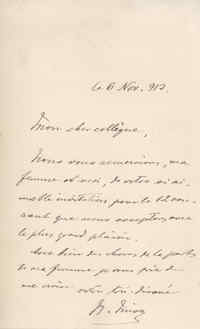 le 6 Nov. 912.
Mon cher collègue,
Nous vous remercions, ma
femme et moi, de votre si ai-
mable invitation pour le 12 cou-
rant que nous acceptons avec
le plus grand plaisir.
de ma femme je vous prie de
me croire votre très dévoué